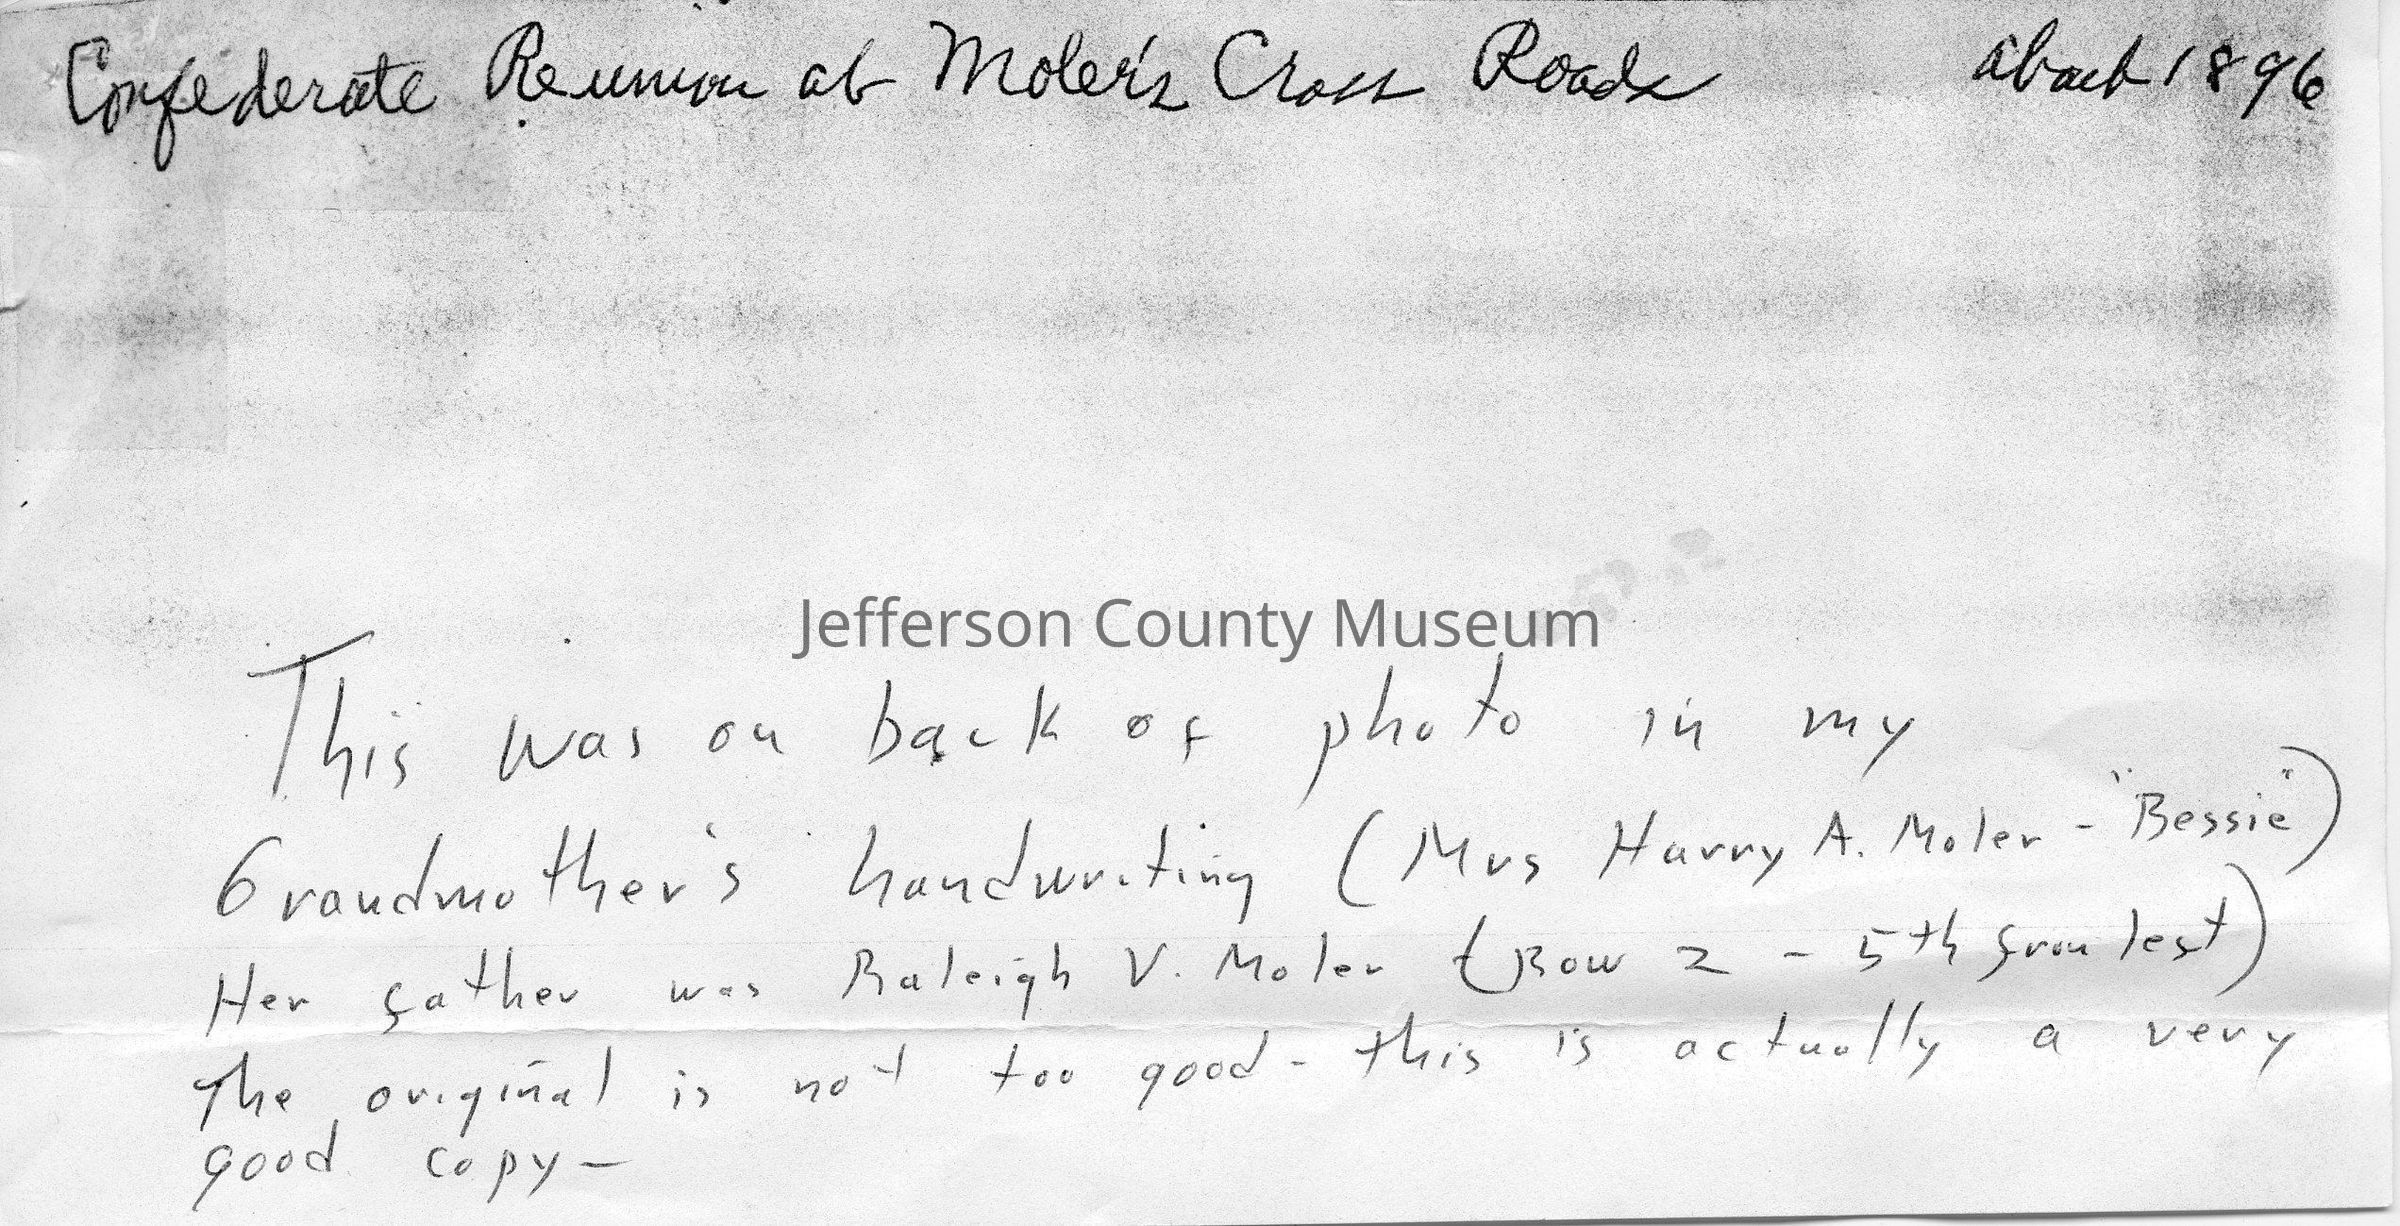 Confederate Reunion at Moler's Cross Roads about 1896
Jefferson County Museum
This was on back of photo in my
Grandmother's handwriting (Mrs Harry A. Moler - "Bessie")
Her father was Raleigh V. Moler (Row 2 - 5th from left)
The original is not too good - this is actually a very
good copy -